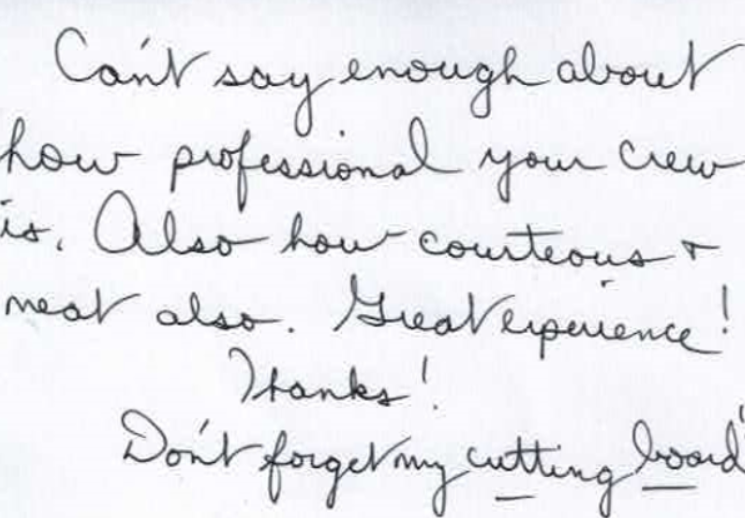 Can't say enough about
how professional your crew
is. Also how courteous +
neat also. Great experience!
Thanks!
Don't forget my cutting board"